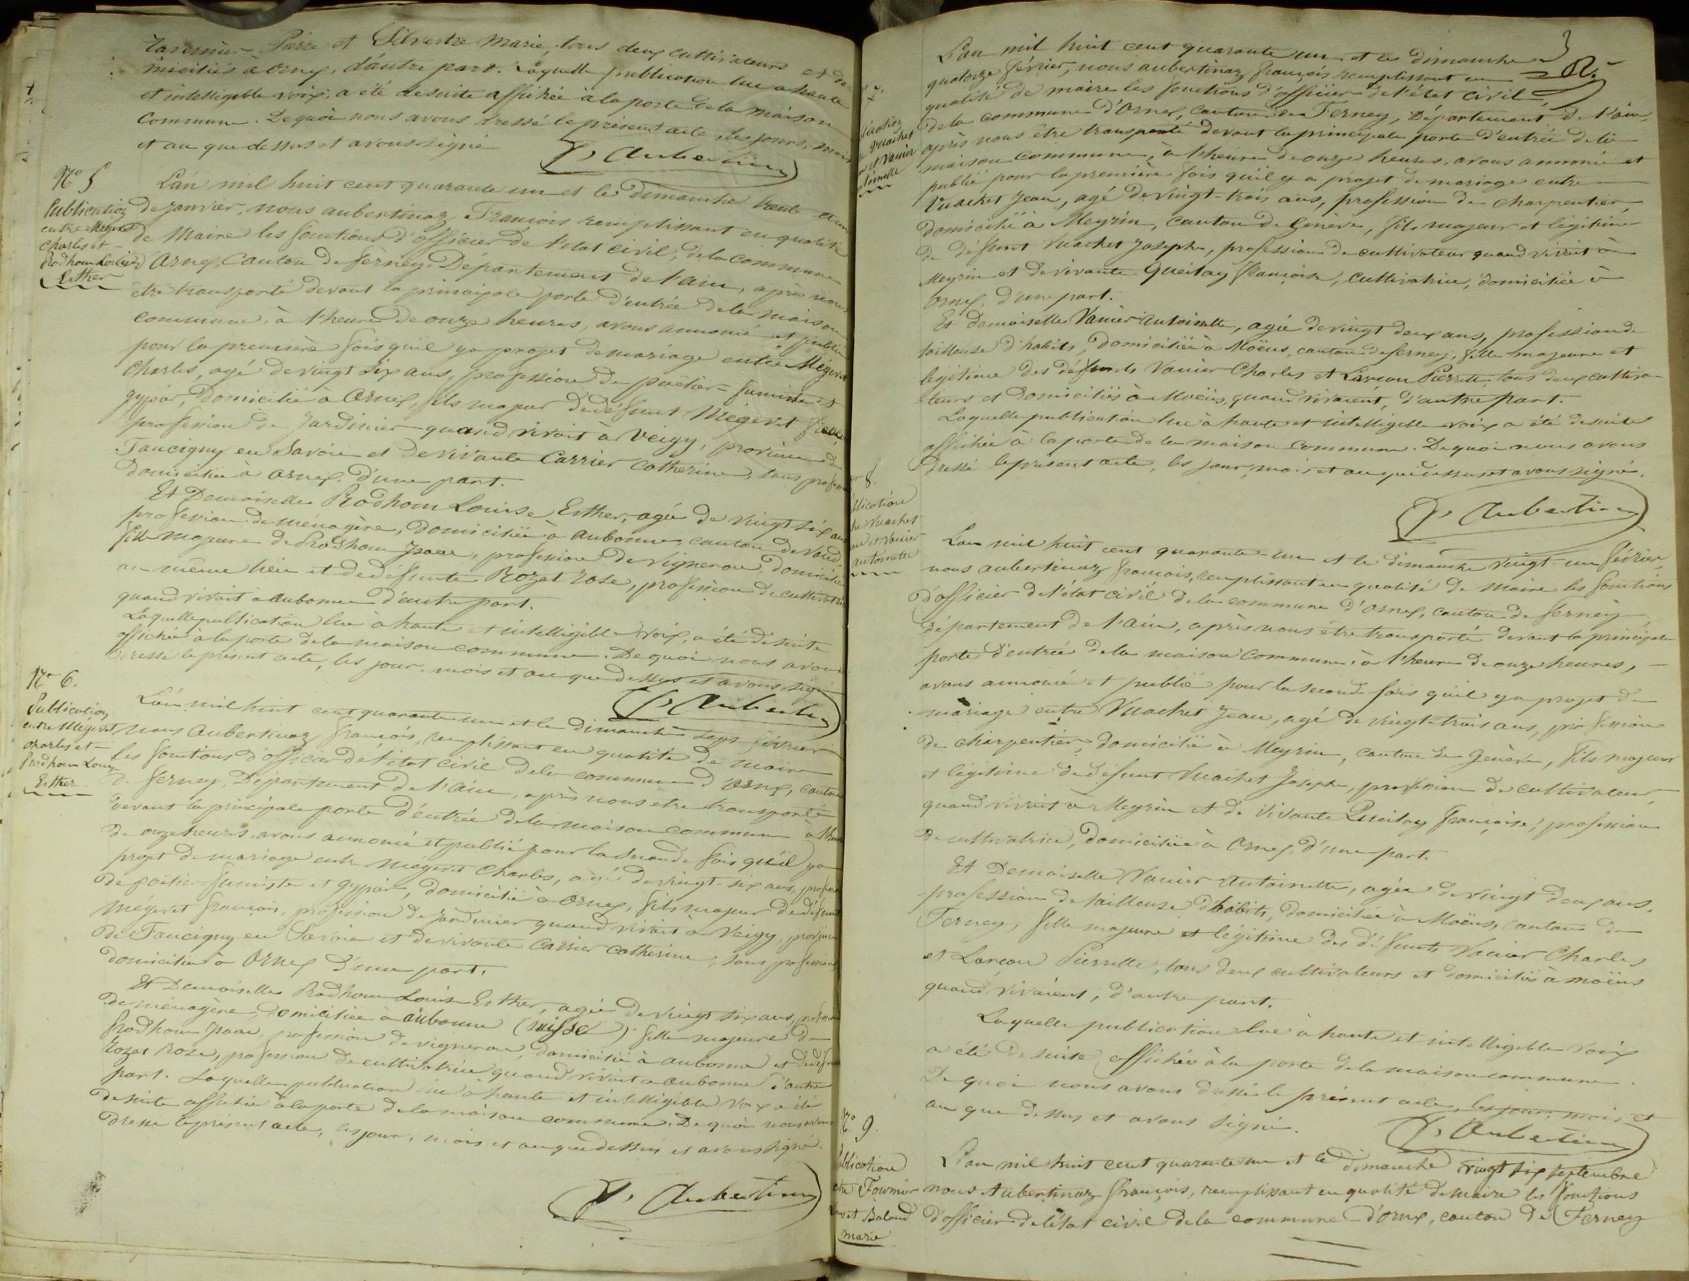 Pierre et Silvestre Marie, tous deux cultivateurs et do
miciliés à Ornex, d'autre part. Laquelle publication lue à haute
et intelligible voix, a été de suite affichée à la porte de la maison
Commune. De quoi nous avons dressé le présent acte, les jours, mois
et an que dessus et avons signé
F.s Aubertin
N.o 5
Publication
entre Mégevet
Charles et
Rodhom Louise
Esther
L'an mil huit cent quarante un et le dimanche trente et un
de janvier, nous aubertinaz François remplissant en qualité
de Maire les fonctions d'officier de l'état civil, de la commune
Ornex, Canton de ferney, Département de l'ain, après nous
être transporté devant la principale porte d'entrée de la maison
commune, à l'heure de onze heures, avons annoncé et publié
pour la première fois qu'il y a projet de mariage entre Mégevet
Charles, agé de vingt six ans, profession de poëlier-fumiste et
gypier, Domicilié à Ornex, fils majeur de défunt Mégevet
profession de Jardinier quand vivait à Veigy, province de
Faucigny en Savoie et de vivante Carrier Catherine, sans profession
domiciliée à Ornex, d'une part.
Et Demoiselle Rodhom Louise Esther, agée de vingt six ans
profession de ménagère, domiciliée à aubonne, canton de Vaud,
fille majeure de Rodhom Isaac, profession de vigneron domicilié
au même lieu et de défunte Rozat Rose, profession de cultivatrice
quand vivait à aubonne d'autre part.
Laquelle publication lue à haute et intelligible voix, a été de suite
affichée à la porte de la maison commune. De quoi nous avons
dressé le présent acte, les jour, mois et an que dessus et avons signé
F.s Aubertin
N.o 6.
Publication
entre Mégevet
Charles et
Rodhom Louise
Esther
L'an mil huit cent quarante un et le dimanche sept février
nous Aubertinaz françois, remplissant en qualité de maire
les fonctions d'officier de l'état civil de la commune d'Ornex, canton
de ferney, Département de l'Ain, après nous être transporté
devant la principale porte d'entrée de la maison commune à l'heure
de onze heures, avons annoncé et publié pour la seconde fois qu'il y a
projet de mariage entre Mégevet Charles, agé de vingt-six ans, profession
de poëlier-fumiste et gypier, domicilié à Ornex, fils majeur de défunt
Mégevet françois, profession de Jardinier quand vivait à Veigy, province
de Faucigny en Savoie et de vivante Carrier Catherine, sans profession
domiciliée à Ornex d'une part.
Et Demoiselle Rodhom Louise Esther, agée de vingt six ans, profession
de ménagère, domiciliée à aubonne (suisse) fille majeure de
Rodhom Isaac, profession de vigneron, domicilié à aubonne et de défunte
Rozat Rose, profession de cultivatrice quand vivait à aubonne d'autre
part. Laquelle publication lue à haute et intelligible voix a été
de suite affichée à la porte de la maison commune. De quoi nous avons
dressé le présent acte, les jour, mois et an que dessus et avons signé.
F.s Aubertin
3
L'an mil huit cent quarante un et le dimanche
quatorze février, nous aubertinaz françois remplissant en
qualité de maire les fonctions d'officier de l'état civil,
de la commune d'Ornex, canton de Ferney, Département de l'ain,
après nous être transporté devant la principale porte d'entrée de la
maison commune, à l'heure de onze heures, avons annoncé et
publié pour la première fois qu'il y a projet de mariage entre
Vuachet Jean, agé de vingt-trois ans, profession de charpentier,
domicilié à Meyrin, canton de Genève, fils majeur et légitime
de défunt Vuachet Joseph, profession de cultivateur quand vivait à
Meyrin et de vivante françoise, cultivatrice, domiciliée à
Ornex, d'une part.
Et Demoiselle Vanier Antoinette, agée de vingt deux ans, profession de
tailleuse d'habits, Domiciliée à Moëns, canton de ferney, fille majeure et
légitime des défunts Vanier Charles et Lançon Pierrette, tous deux cultiva-
teurs et domiciliés à Moëns, quand vivaient, d'autre part.
Laquelle publication lue à haute et intelligible voix a été de suite
affichée à la porte de la maison commune. De quoi nous avons
dressé le présent acte, les jour, mois et an que dessus et avons signé.
F.s Aubertin
8.
L'an mil huit cent quarante un et le dimanche vingt-un février
nous aubertinaz françois, remplissant en qualité de maire les fonctions
d'officier de l'état civil de la commune d'Ornex, canton de ferney
département de l'ain, après nous être transporté devant la principale
porte d'entrée de la maison commune, à l'heure de onze heures,
avons annoncé et publié pour la seconde fois qu'il y a projet de
mariage entre Vuachet Jean, agé de vingt-trois ans, profession
de charpentier, domicilié à Meyrin, canton de Genève, fils majeur
et légitime de défunt Vuachet Joseph, profession de cultivateur,
quand vivait à Meyrin et de Vivante françoise, profession
de cultivatrice, domiciliée à Ornex, d'une part.
Et Demoiselle Vanier Antoinette, agée de vingt deux ans,
profession de tailleuse d'habits, domiciliée à Moëns, canton de
Ferney, fille majeure et légitime des défunts Vanier Charles
et Lançon Pierrette, tous deux cultivateurs et domiciliés à moëns
quand vivaient, d'autre part.
Laquelle publication lue à haute et intelligible voix
a été de suite affichée à la porte de la maison commune.
De quoi nous avons dressé le présent acte, les jour, mois et
an que dessus et avons signé.
F.s Aubertin
N.o 9.
Publication
entre Fournier
et Baland
marie
L'an mil huit cent quarante un et le dimanche vingt six septembre
nous Aubertinaz françois, remplissant en qualité de maire les fonctions
d'officier de l'état civil de la commune d'Ornex, canton de Ferney